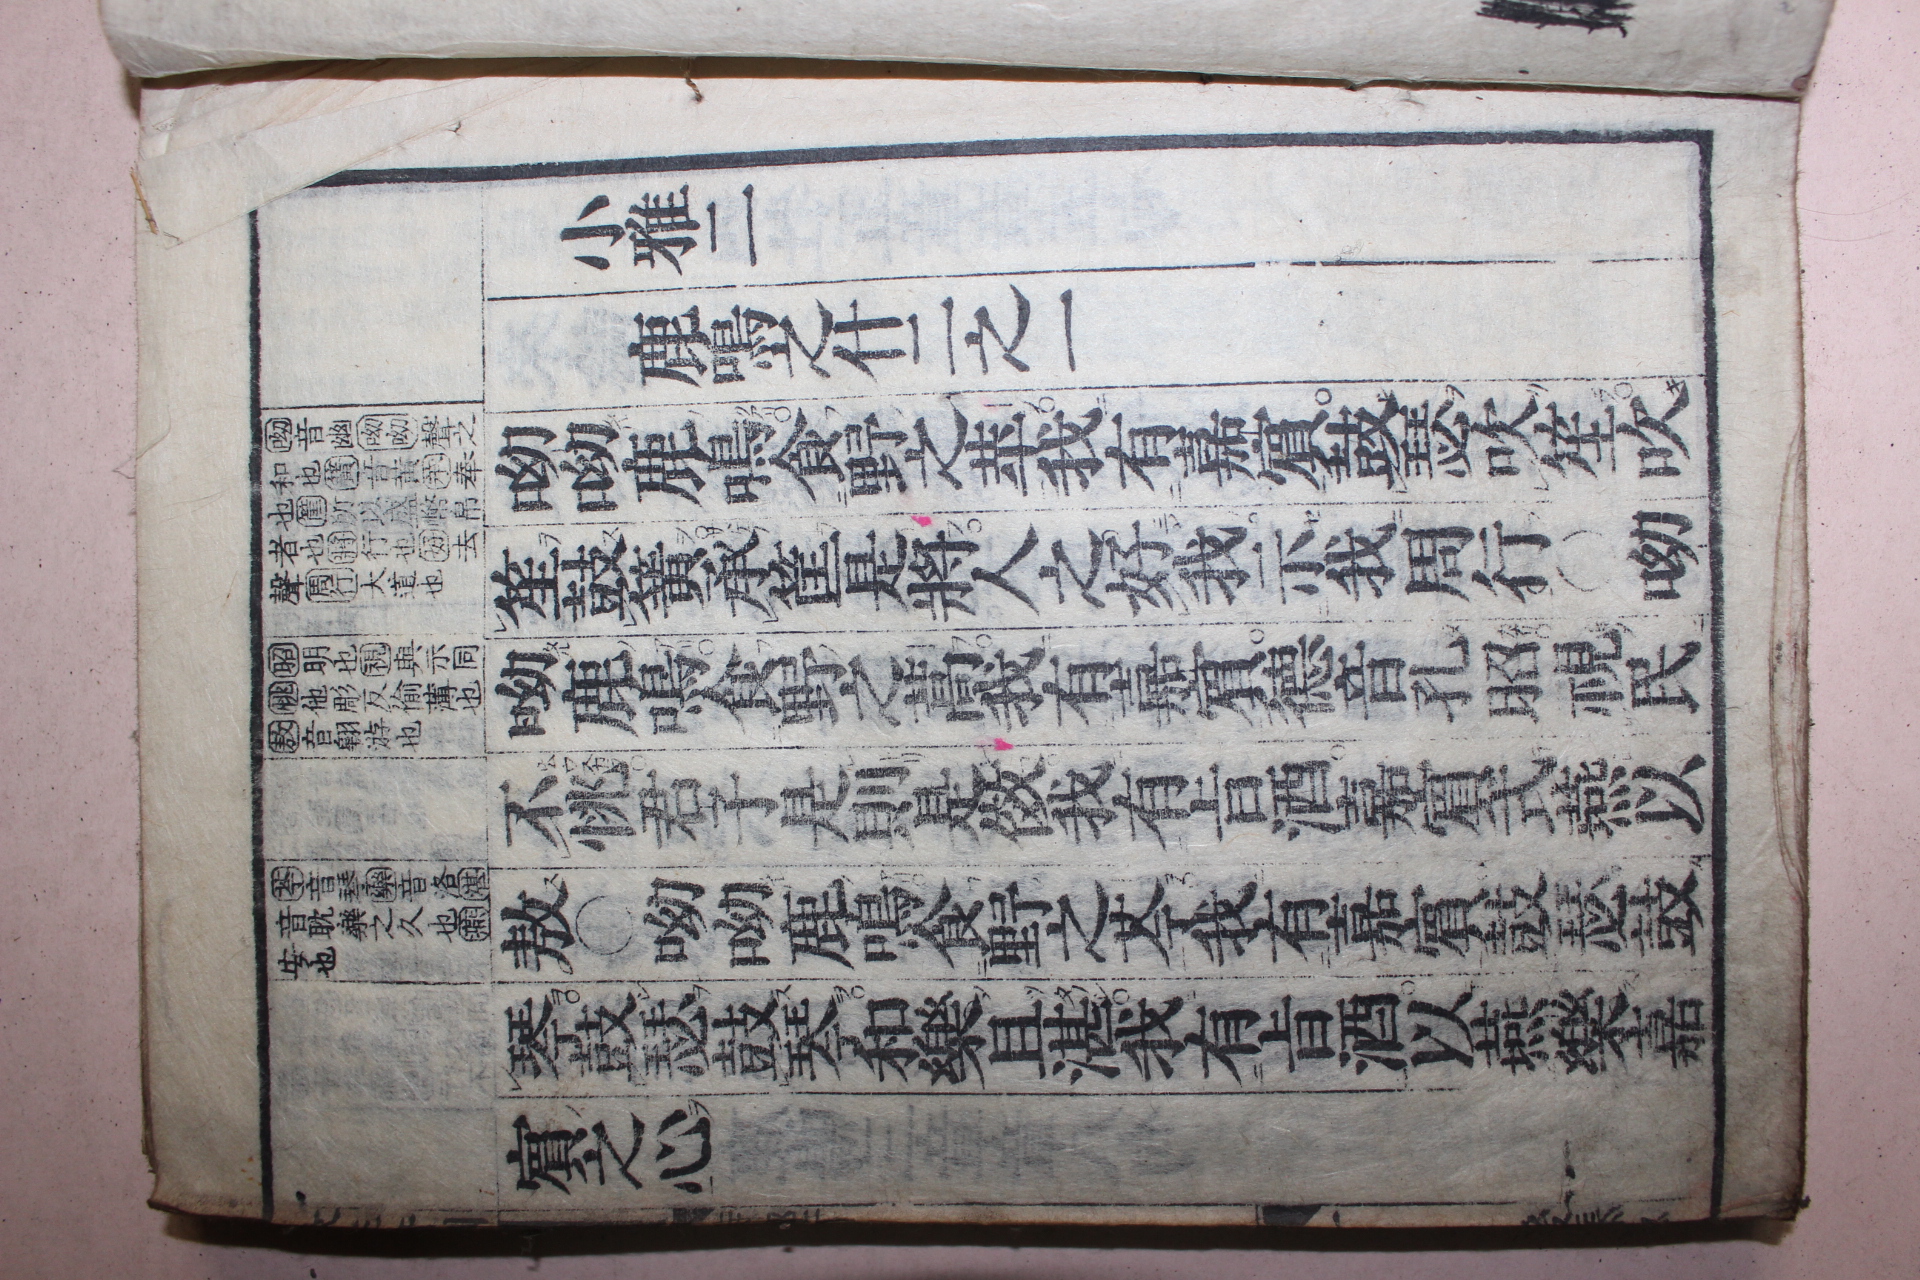 小雅二
鹿鳴之什二之一
呦呦鹿鳴食野之苹我有嘉賔鼓瑟吹笙吹
笙鼓簧承筐是將人之好我示我周行○呦
呦鹿鳴食野之蒿我有嘉賔德音孔昭視民
不恌君子是則是傚我有旨酒嘉賔式燕以
敖○呦呦鹿鳴食野之芩我有嘉賔鼓瑟鼓
琴鼓瑟鼓琴和樂且湛我有旨酒以燕樂嘉
賔之心
呦音幽呦呦聲之
和也簧音黄苹奉
也筐所以盛幣帛
者也將行也好去
聲周行大道也
昭明也視與示同
恌他彫反偷薄也
敖音翺游也
芩音琴樂音洛湛
音耽樂之久也燕
安也